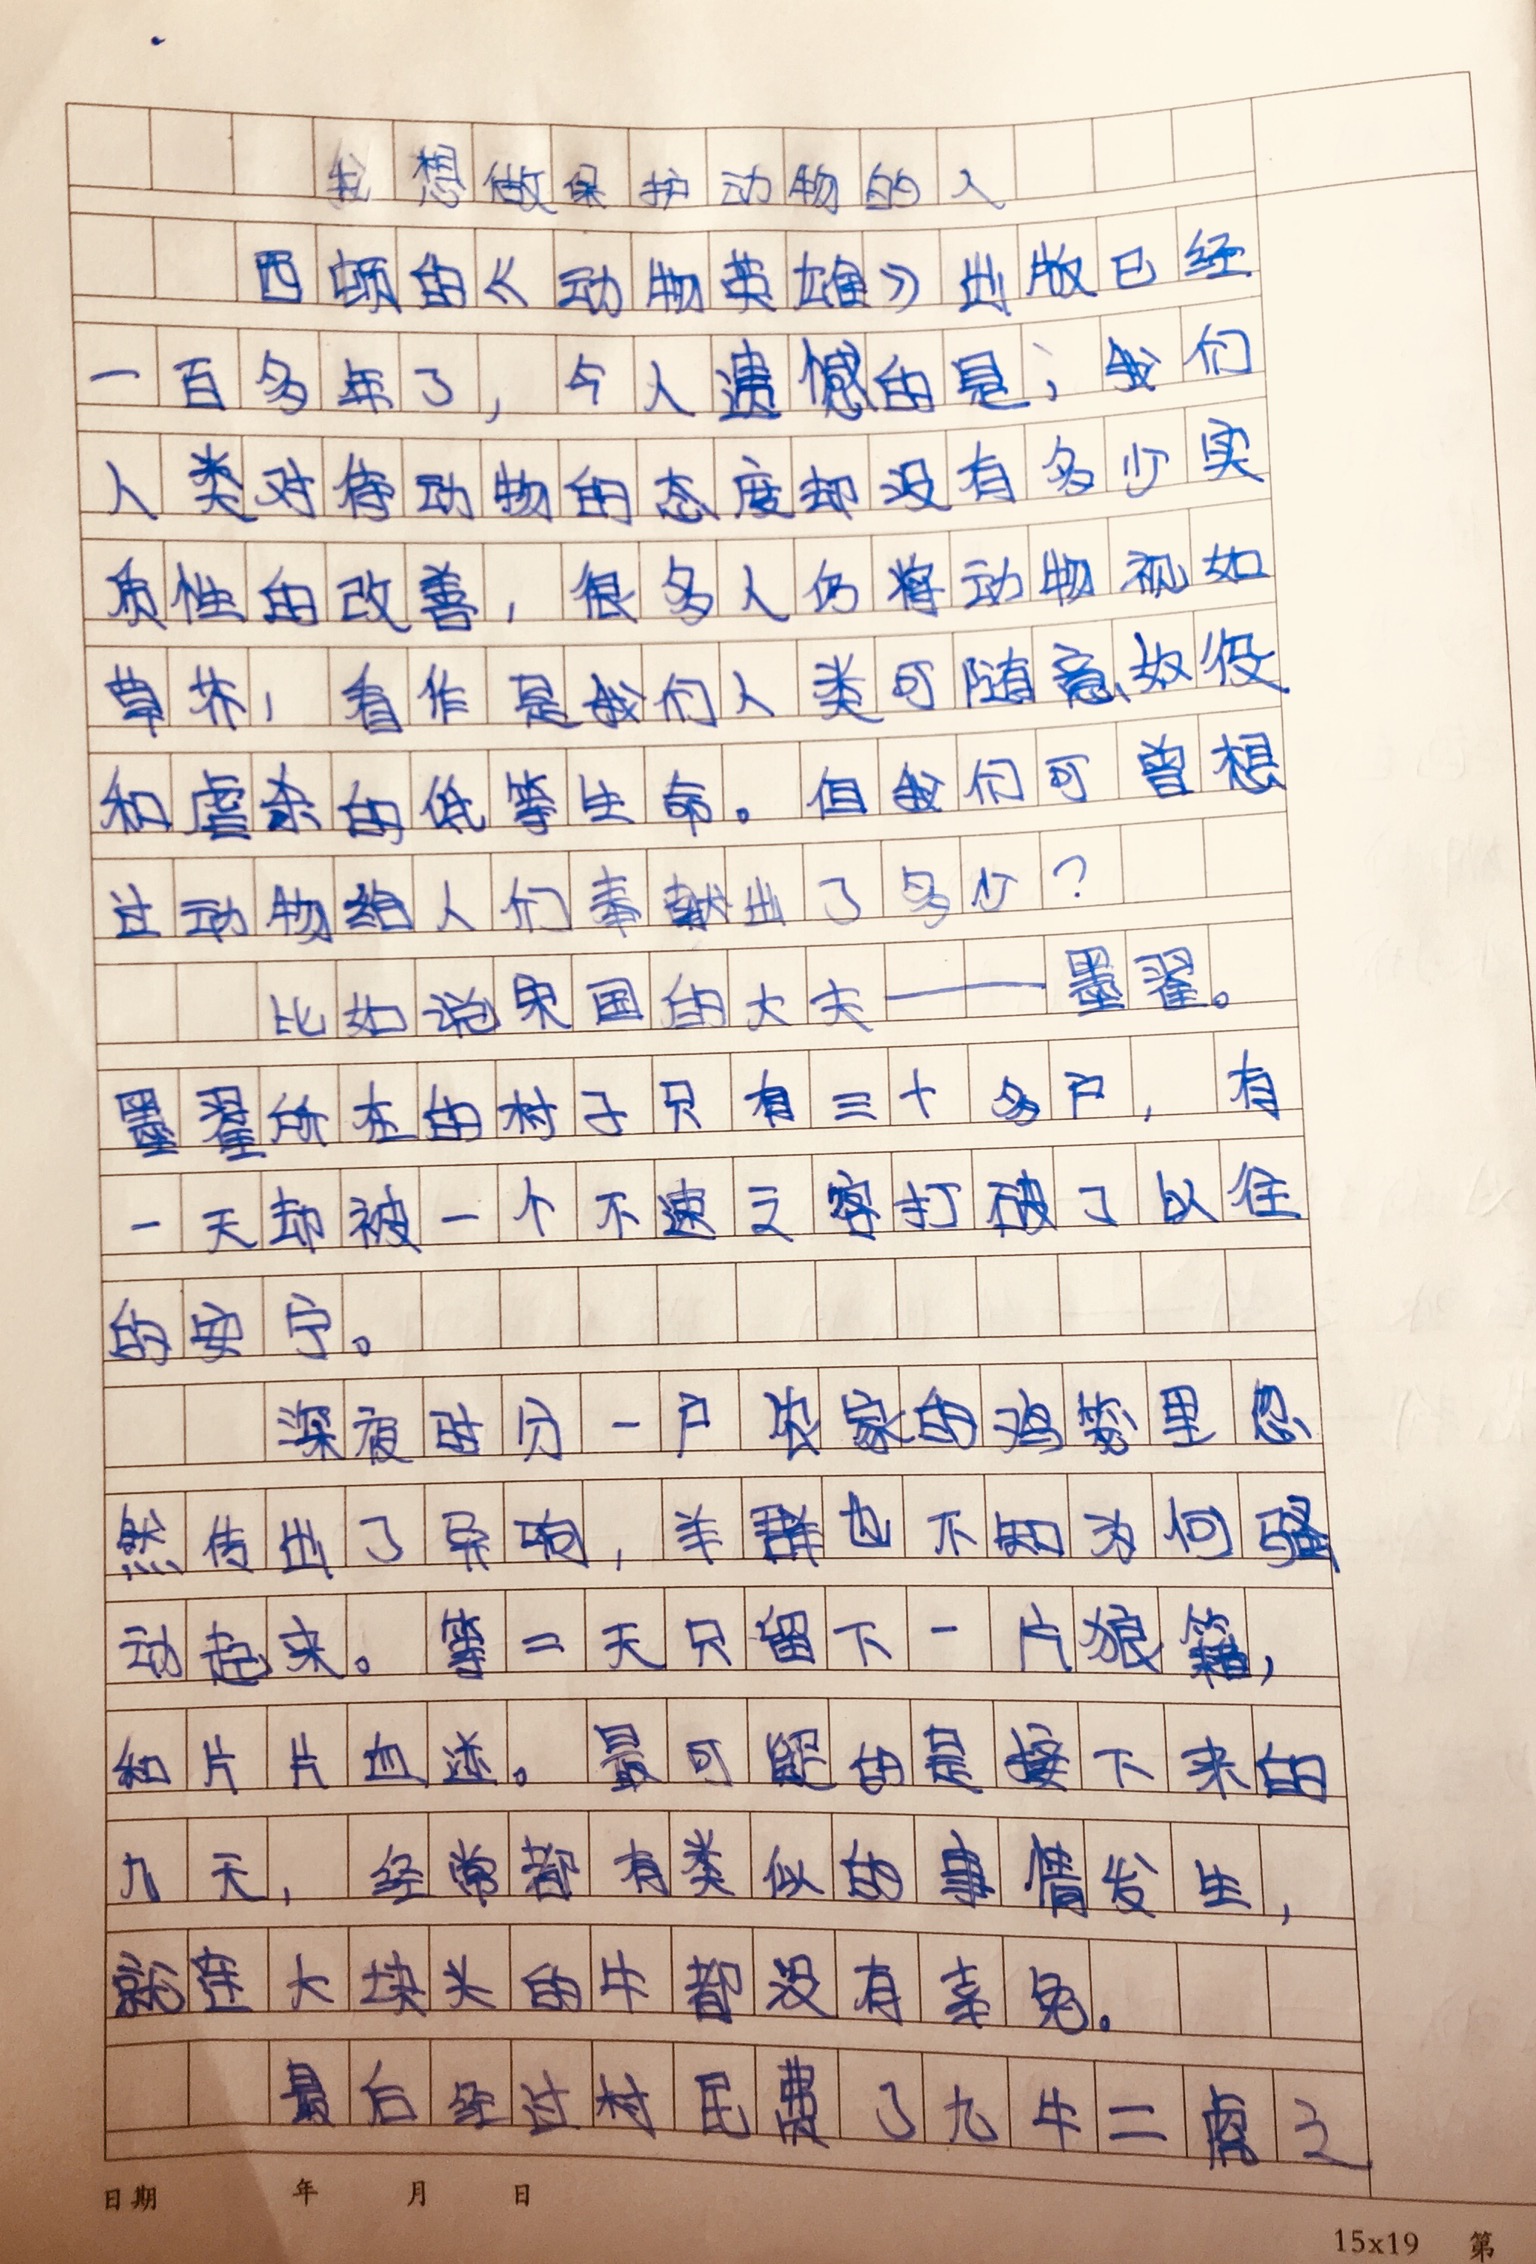 我想做保护动物的人
西顿的《动物英雄》出版已经
一百多年了，令人遗憾的是，我们
人类对待动物的态度却没有多少实
质性的改善，很多人仍将动物视如
草芥，看作是我们人类可随意奴役
和虐杀的低等生命。但我们可曾想
过动物给人们奉献出了多少？
比如说宋国的大夫——墨翟。
墨翟所在的村子只有三十多户，有
一天却被一个不速之客打破了以往
的安宁。
深夜时分一户农家的鸡笼里忽
然传出了异响，羊群也不知为何骚
动起来。等二天只留下一片狼籍，
和片片血迹。最可能的是接下来的
九天，经常都有类似的事情发生，
就连大块头的牛都没有幸免。
最后经过村民费了九牛二虎之
日期 年 月 日
15x19 第